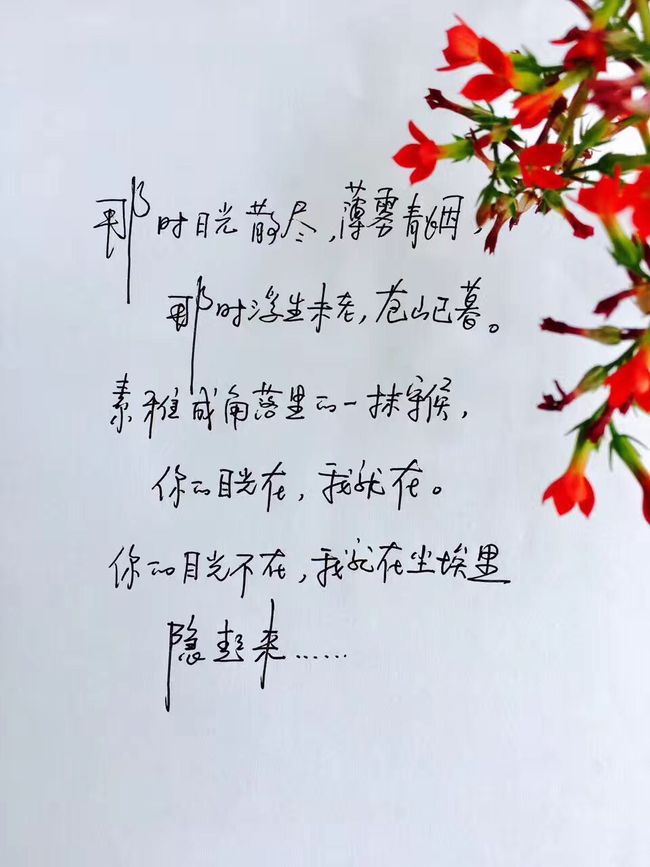 那时月光散尽,薄雾青烟,
那时浮生未老,苍山已暮。
素雅成角落里的一抹守候,
你的目光在,我就在。
你的目光不在,我就在尘埃里
隐起来……